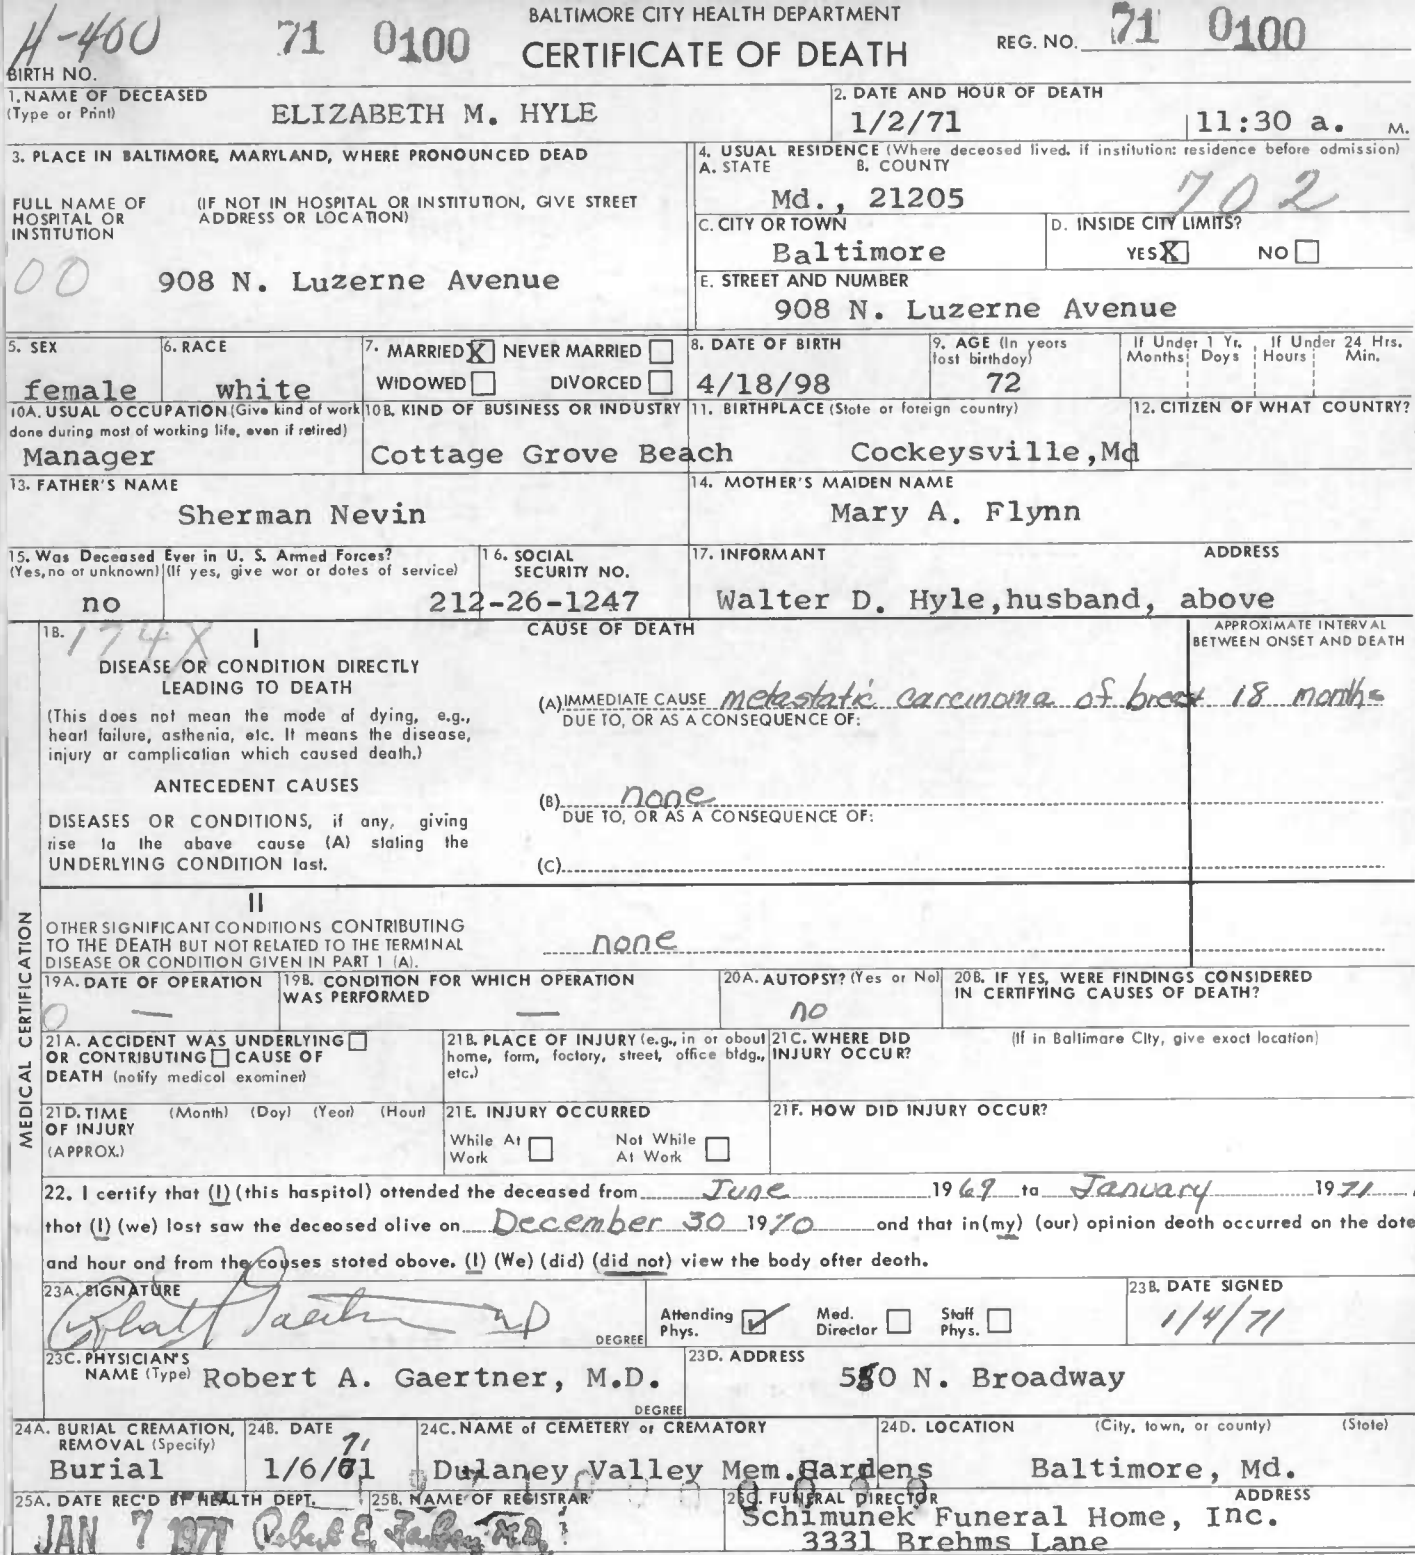 H-400 71 0100 BALTIMORE CITY HEALTH DEPARTMENT
CERTIFICATE OF DEATH REG. NO. 71 0100
BIRTH NO.
1. NAME OF DECEASED (Type or Print) ELIZABETH M. HYLE
2. DATE AND HOUR OF DEATH 1/2/71 11:30 a. M.
3. PLACE IN BALTIMORE, MARYLAND, WHERE PRONOUNCED DEAD
FULL NAME OF HOSPITAL OR INSTITUTION (IF NOT IN HOSPITAL OR INSTITUTION, GIVE STREET ADDRESS OR LOCATION)
00 908 N. Luzerne Avenue
4. USUAL RESIDENCE (Where deceased lived. if institution: residence before admission)
A. STATE B. COUNTY
Md., 21205 702
C. CITY OR TOWN Baltimore
D. INSIDE CITY LIMITS? YES X NO
E. STREET AND NUMBER
908 N. Luzerne Avenue
5. SEX female
6. RACE white
7. MARRIED X NEVER MARRIED
WIDOWED DIVORCED
8. DATE OF BIRTH 4/18/98
9. AGE (In years last birthday) 72
If Under 1 Yr. Months Days If Under 24 Hrs. Hours Min.
10A. USUAL OCCUPATION (Give kind of work done during most of working life, even if retired) Manager
10B. KIND OF BUSINESS OR INDUSTRY Cottage Grove Beach
11. BIRTHPLACE (State or foreign country) Cockeysville, Md
12. CITIZEN OF WHAT COUNTRY?
13. FATHER'S NAME Sherman Nevin
14. MOTHER'S MAIDEN NAME Mary A. Flynn
15. Was Deceased Ever in U. S. Armed Forces? (Yes, no or unknown) (If yes, give war or dates of service) no
16. SOCIAL SECURITY NO. 212-26-1247
17. INFORMANT ADDRESS
Walter D. Hyle, husband, above
18. 174X I CAUSE OF DEATH APPROXIMATE INTERVAL BETWEEN ONSET AND DEATH
DISEASE OR CONDITION DIRECTLY LEADING TO DEATH
(This does not mean the mode of dying, e.g., heart failure, asthenia, etc. It means the disease, injury or complication which caused death.)
(A) IMMEDIATE CAUSE metastatic carcinoma of breast 18 months
DUE TO, OR AS A CONSEQUENCE OF:
ANTECEDENT CAUSES
DISEASES OR CONDITIONS, if any, giving rise to the above cause (A) stating the UNDERLYING CONDITION last.
(B) none
DUE TO, OR AS A CONSEQUENCE OF:
(C)
II
OTHER SIGNIFICANT CONDITIONS CONTRIBUTING TO THE DEATH BUT NOT RELATED TO THE TERMINAL DISEASE OR CONDITION GIVEN IN PART 1 (A).
none
MEDICAL CERTIFICATION
19A. DATE OF OPERATION 0 —
19B. CONDITION FOR WHICH OPERATION WAS PERFORMED —
20A. AUTOPSY? (Yes or No) no
20B. IF YES, WERE FINDINGS CONSIDERED IN CERTIFYING CAUSES OF DEATH?
21A. ACCIDENT WAS UNDERLYING OR CONTRIBUTING CAUSE OF DEATH (notify medical examiner)
21B. PLACE OF INJURY (e.g., in or about home, farm, factory, street, office bldg., etc.)
21C. WHERE DID INJURY OCCUR? (If in Baltimore City, give exact location)
21D. TIME OF INJURY (APPROX.) (Month) (Day) (Year) (Hour)
21E. INJURY OCCURRED
While At Work Not While At Work
21F. HOW DID INJURY OCCUR?
22. I certify that (I) (this hospital) attended the deceased from June 1969 to January 1971,
that (I) (we) last saw the deceased alive on December 30 1970 and that in (my) (our) opinion death occurred on the date
and hour and from the causes stated above. (I) (We) (did) (did not) view the body after death.
23A. SIGNATURE Robert Gaertner MD DEGREE
Attending Phys. Med. Director Staff Phys.
23B. DATE SIGNED 1/4/71
23C. PHYSICIAN'S NAME (Type) Robert A. Gaertner, M.D. DEGREE
23D. ADDRESS N. Broadway
24A. BURIAL CREMATION, REMOVAL (Specify) Burial
24B. DATE 1/6/71
24C. NAME of CEMETERY or CREMATORY Dulaney Valley Mem. Gardens
24D. LOCATION (City, town, or county) (State) Baltimore, Md.
25A. DATE REC'D BY HEALTH DEPT. JAN 7 1971
25B. NAME OF REGISTRAR Robert E. Farber, M.D.
25C. FUNERAL DIRECTOR ADDRESS
Schimunek Funeral Home, Inc.
3331 Brehms Lane